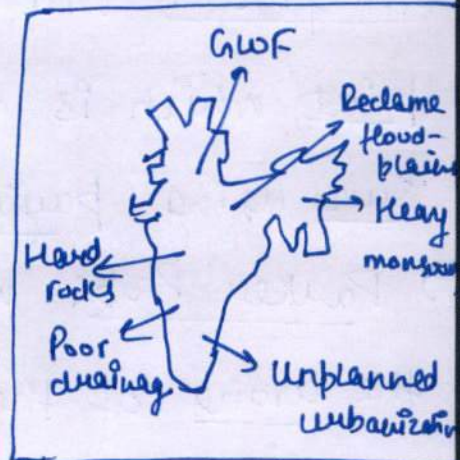 GLOF
Reclame
flood-
plains
Heavy
monsoon
Hard
rocks
Poor
drainag
Unplanned
urbanizatin